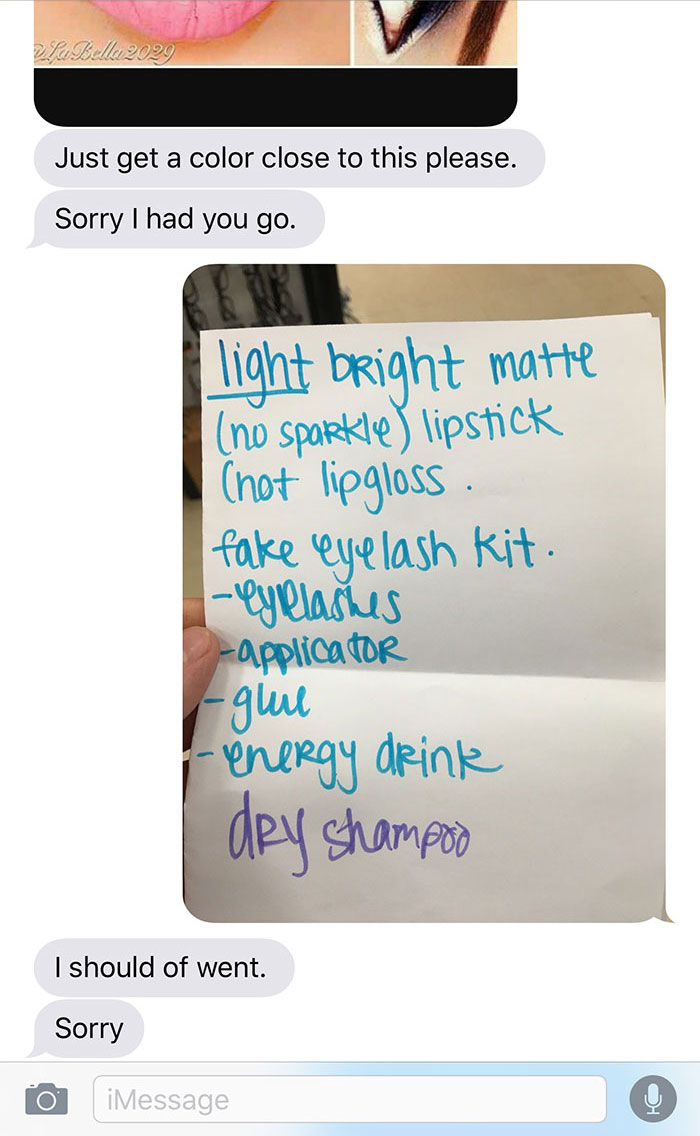 @LaBella2029
Just get a color close to this please.
Sorry I had you go.
light bright matte
(no sparkle) lipstick
(not lipgloss .
fake eyelash kit.
-eyelashes
-applicator
-glue
-energy drink
dry shampoo
I should of went.
Sorry
iMessage